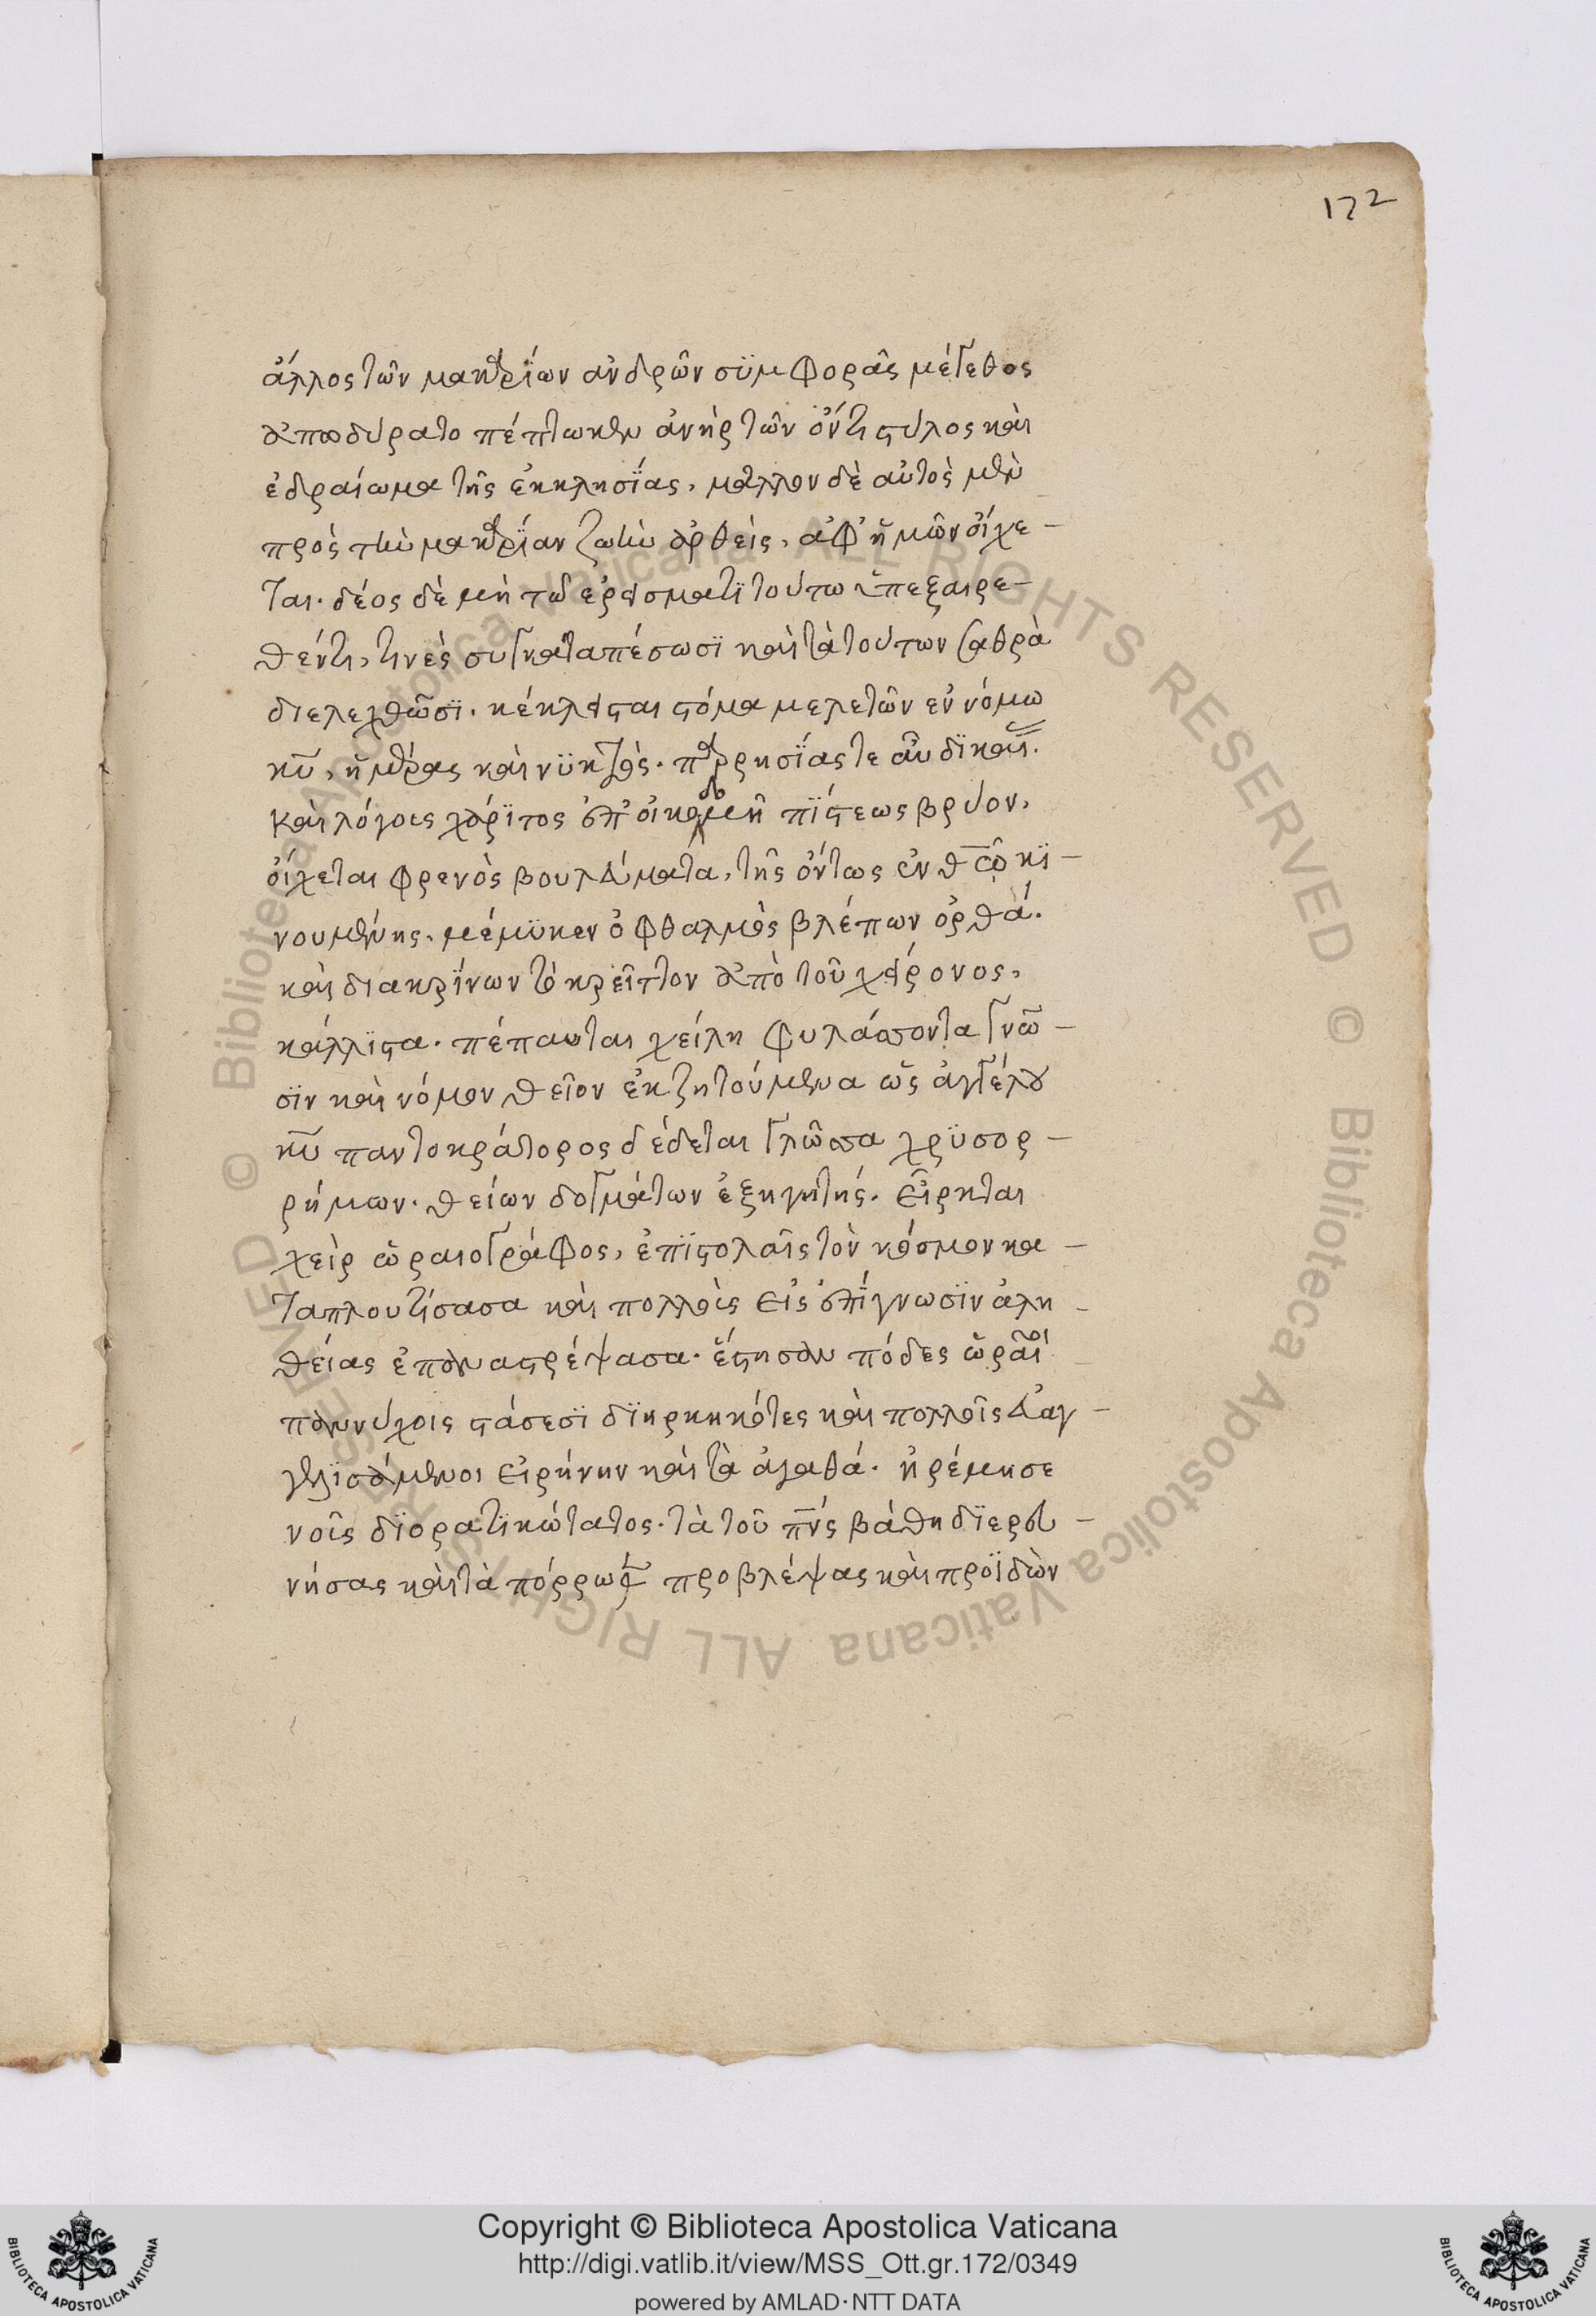 172
ἄλλος τῶν μακαρίων ἀνδρῶν συμφορᾶς μέγεθος
ἀπωδύρατο πέπτωκεν ἀνὴρ τῶν ὄντι στύλος καὶ
ἑδραίωμα τῆς ἐκκλησίας, μᾶλλον δὲ αὐτὸς μὲν
πρὸς τὴν μακαρίαν ζωὴν ἀρθεὶς, ἀφ' ἡμῶν οἴχε-
ται. δέος δὲ μὴ τῶ ἐρείσματι τούτω ὑπεξαιρε-
θέντι, τινὲς συγκαταπέσωσι καὶ τὰ τούτων σαθρὰ
διελεχθῶσι. κέκλεισται στόμα μελετῶν ἐν νόμω
κυ, ἡμέρας καὶ νυκτὸς. παρρησίας τε ἂν δικαι.
καὶ λόγοις χάριτος ἐπ' οἰκοδομῆ πίστεως βρύον,
οἴχεται φρενὸς βουλεύματα, τῆς ὄντως ἐν θῶ κι-
νουμένης. μέμυκεν ὀφθαλμὸς βλέπων ὀρθά.
καὶ διακρίνων τὸ κρεῖττον ἀπὸ τοῦ χείρονος,
κάλλιστα. πέπαυται χείλη φυλάσσοντα γνῶ-
σιν καὶ νόμον θεῖον ἐκζητούμενα ὡς ἀγγέλου
κυ παντοκράτορος δέδεται γλῶσσα χρυσορ-
ρήμων. θείων δογμάτων ἐξηγητής. εἴρηται
χεὶρ ὡραιογράφος, ἐπιστολαῖς τὸν κόσμον κα-
ταπλουτίσασα καὶ πολλοὺς εἰς ἐπίγνωσιν ἀλη-
θείας ἐπαναστρέψασα. ἔστησαν πόδες ὡραῖοι
παννύχοις στάσεσι διηρκηκότες καὶ πολλοῖς εὐαγ-
γελισάμενοι εἰρήνην καὶ τὰ ἀγαθά. ἠρέμησε
νοῦς διορατικώτατος. τὰ τοῦ πνς βάθη διερευ-
νήσας καὶ τὰ πόρρωθεν προβλέψας καὶ προϊδὼν
Copyright © Biblioteca Apostolica Vaticana
http://digi.vatlib.it/view/MSS_Ott.gr.172/0349
powered by AMLAD·NTT DATA